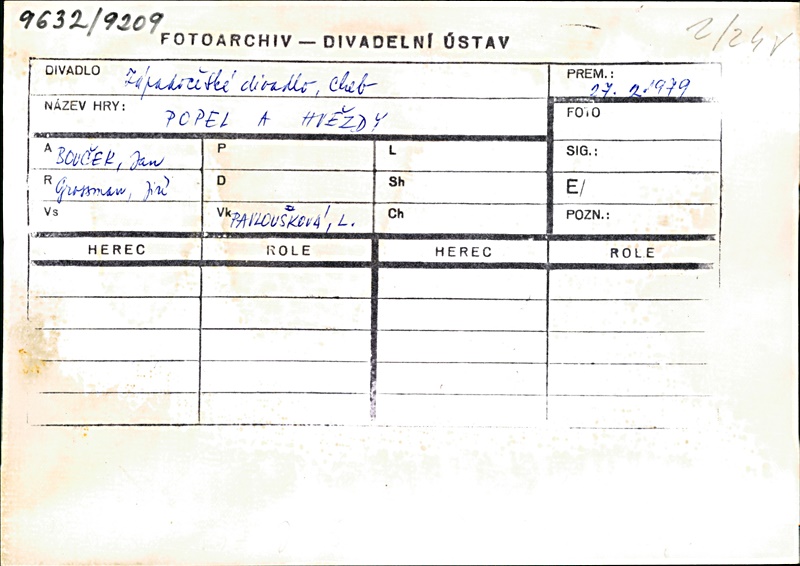 9632/9209
2/24v
FOTOARCHIV — DIVADELNÍ ÚSTAV
DIVADLO Západočeské divadlo, Cheb
PREM.: 27. 2. 1979
NÁZEV HRY: POPEL A HVĚZDY
FOTO
A BOUČEK, Jan
P
L
SIG.:
R Grossman, Jiří
D
Sh
E/
Vs
Vk PAVLOUŠKOVÁ, L.
Ch
POZN.:
HEREC ROLE HEREC ROLE